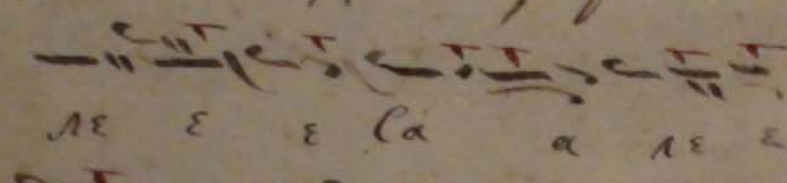 λε ε ε σα α λε ε